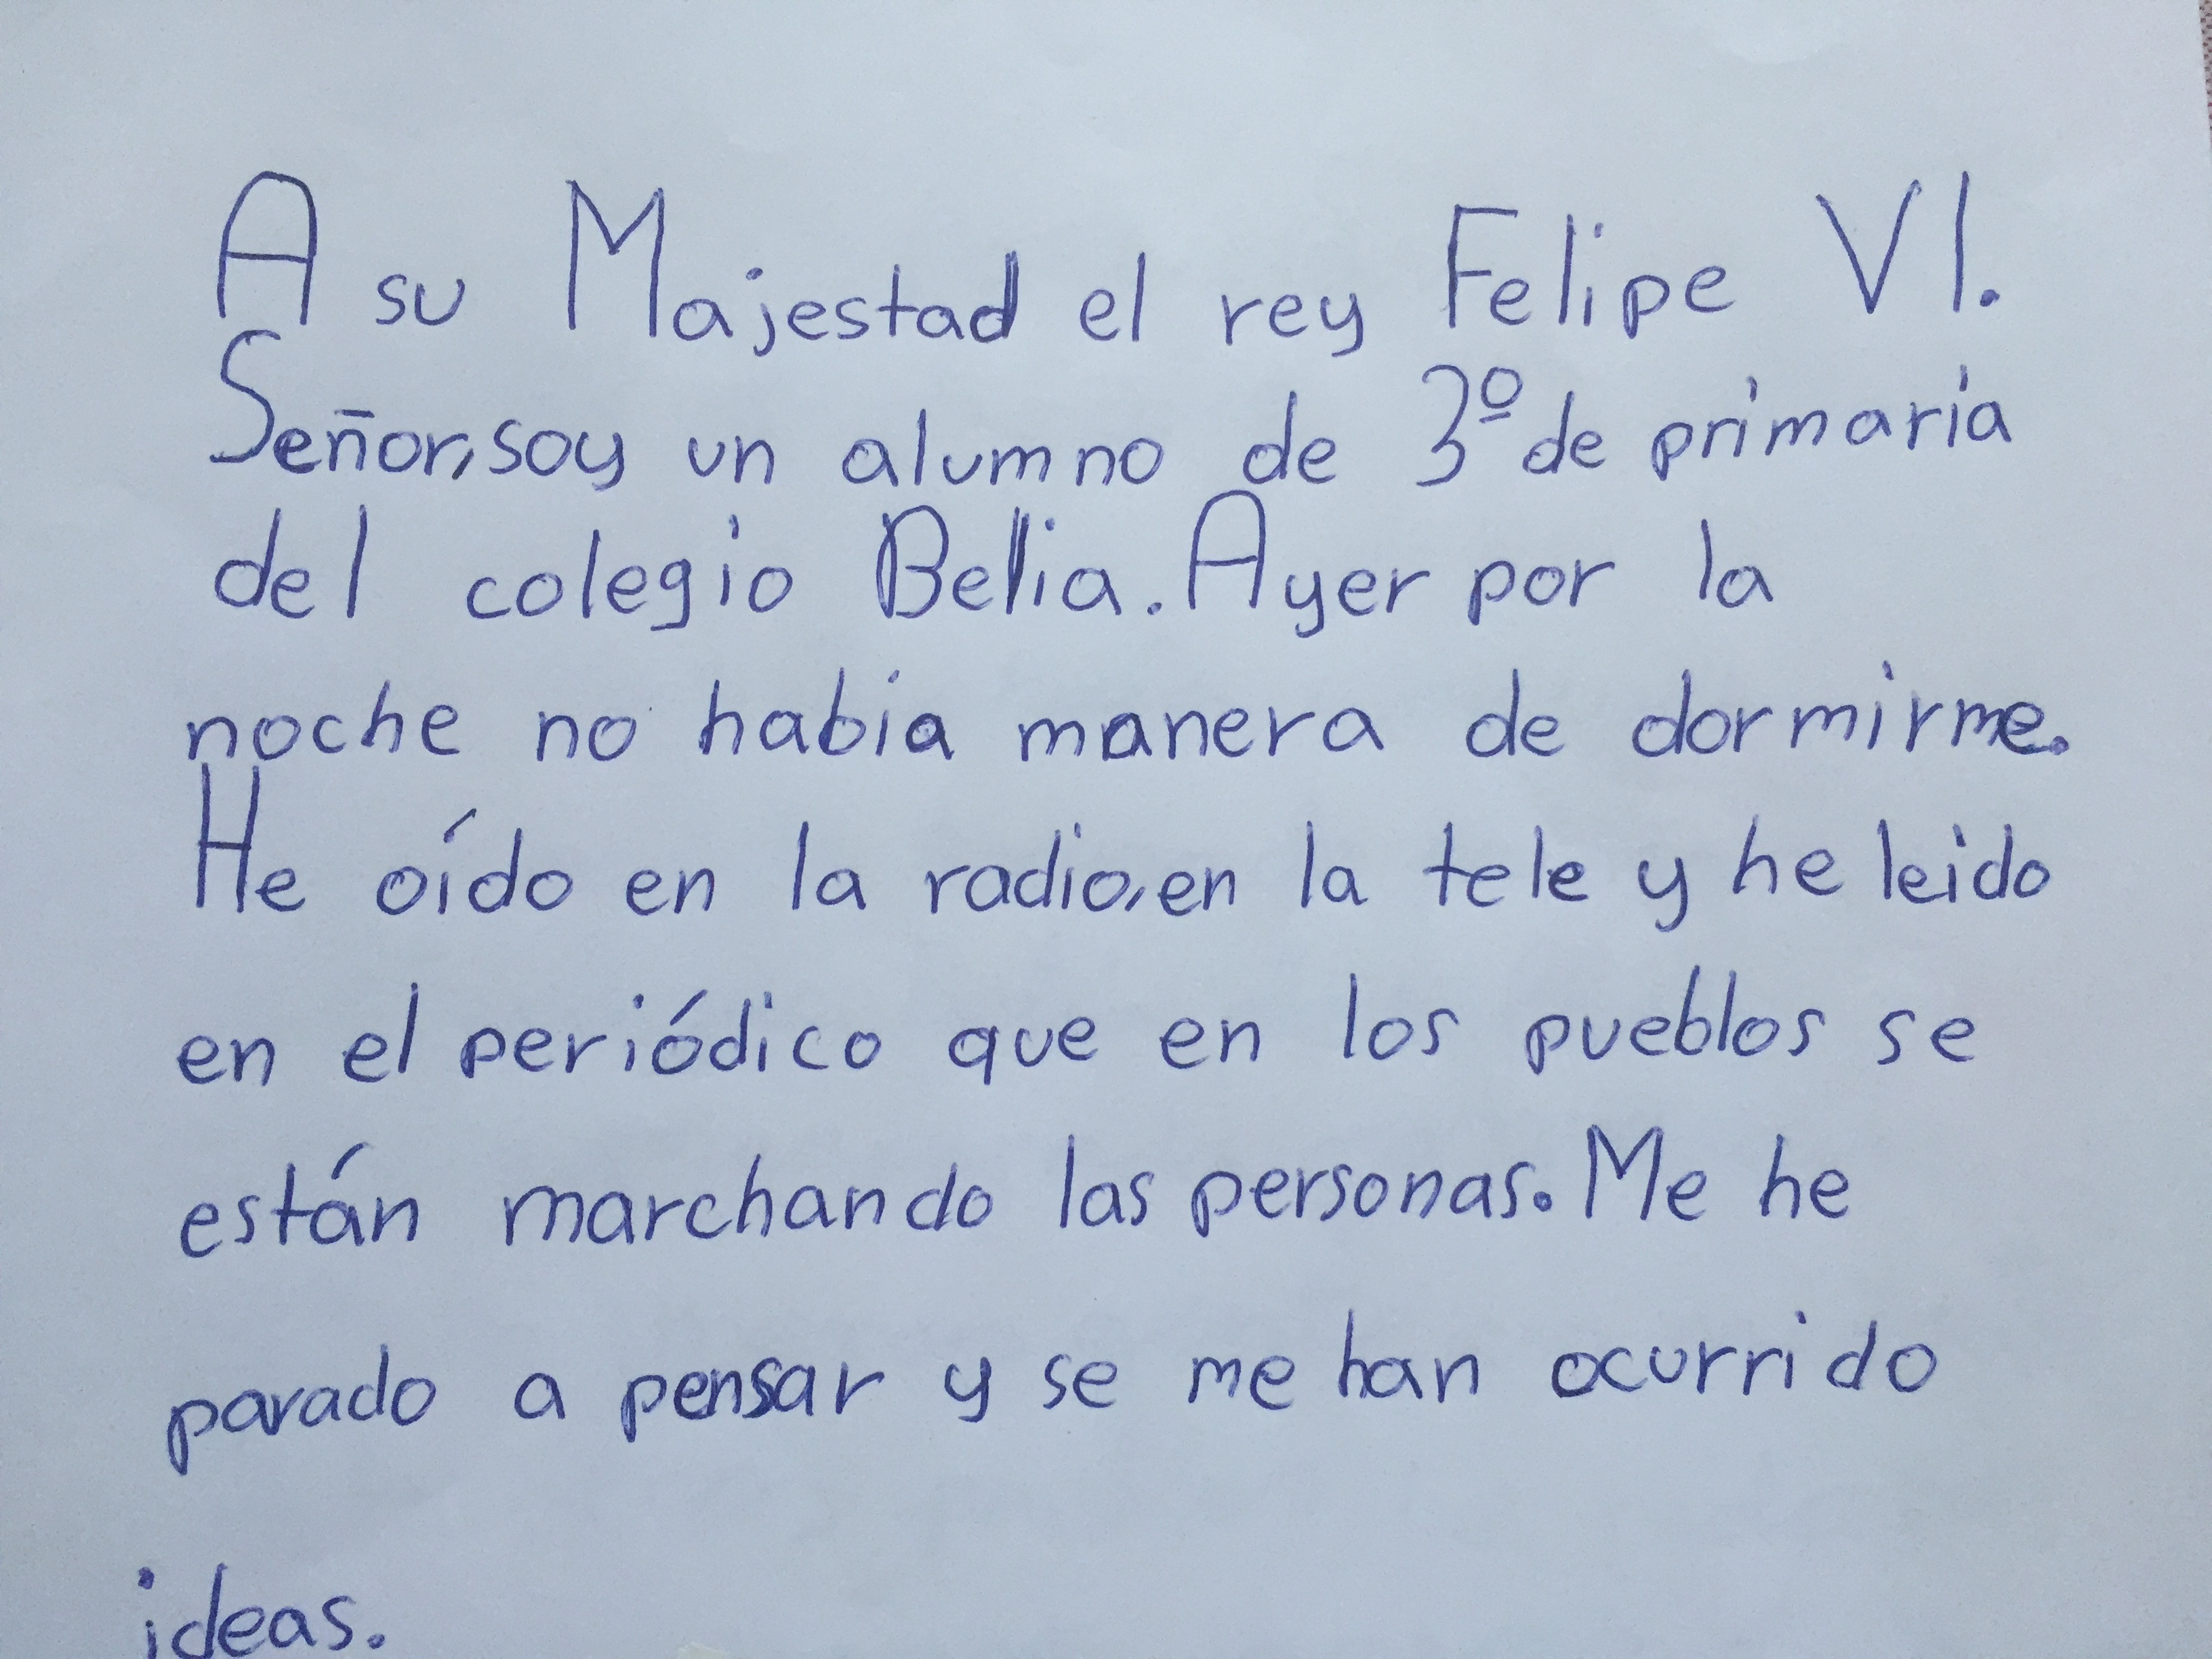 A su Majestad el rey Felipe VI.
Señor, soy un alumno de 3º de primaria
del colegio Bellia. Ayer por la
noche no habia manera de dormirme.
He oído en la radio, en la tele y he leido
en el periódico que en los pueblos se
están marchando las personas. Me he
parado a pensar y se me han ocurrido
ideas.